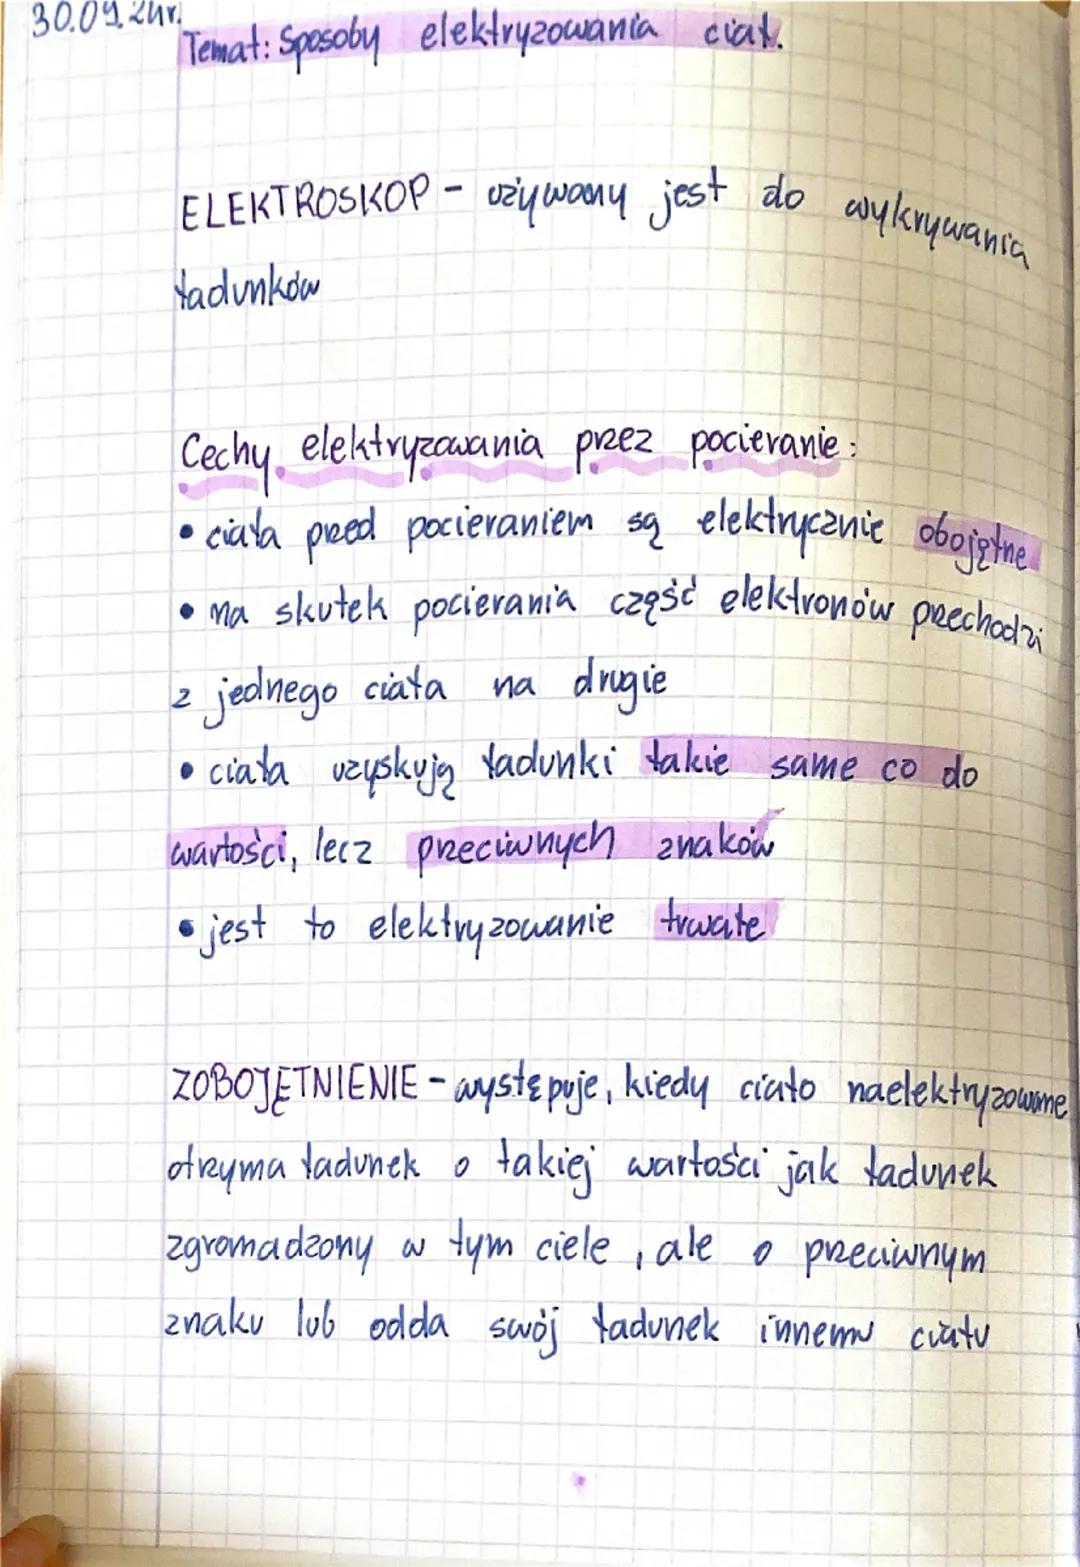 30.09.24r.
Temat: Sposoby elektryzowania ciał.
ELEKTROSKOP - używany jest do wykrywania
ładunków
Cechy elektryzowania przez pocieranie:
• ciała przed pocieraniem są elektrycznie obojętne
• na skutek pocierania część elektronów przechodzi
z jednego ciała na drugie
• ciała uzyskują ładunki takie same co do
wartości, lecz przeciwnych znaków
• jest to elektryzowanie trwałe
ZOBOJĘTNIENIE - występuje, kiedy ciało naelektryzowane
otrzyma ładunek o takiej wartości jak ładunek
zgromadzony w tym ciele, ale o przeciwnym
znaku lub odda swój ładunek innemu ciału